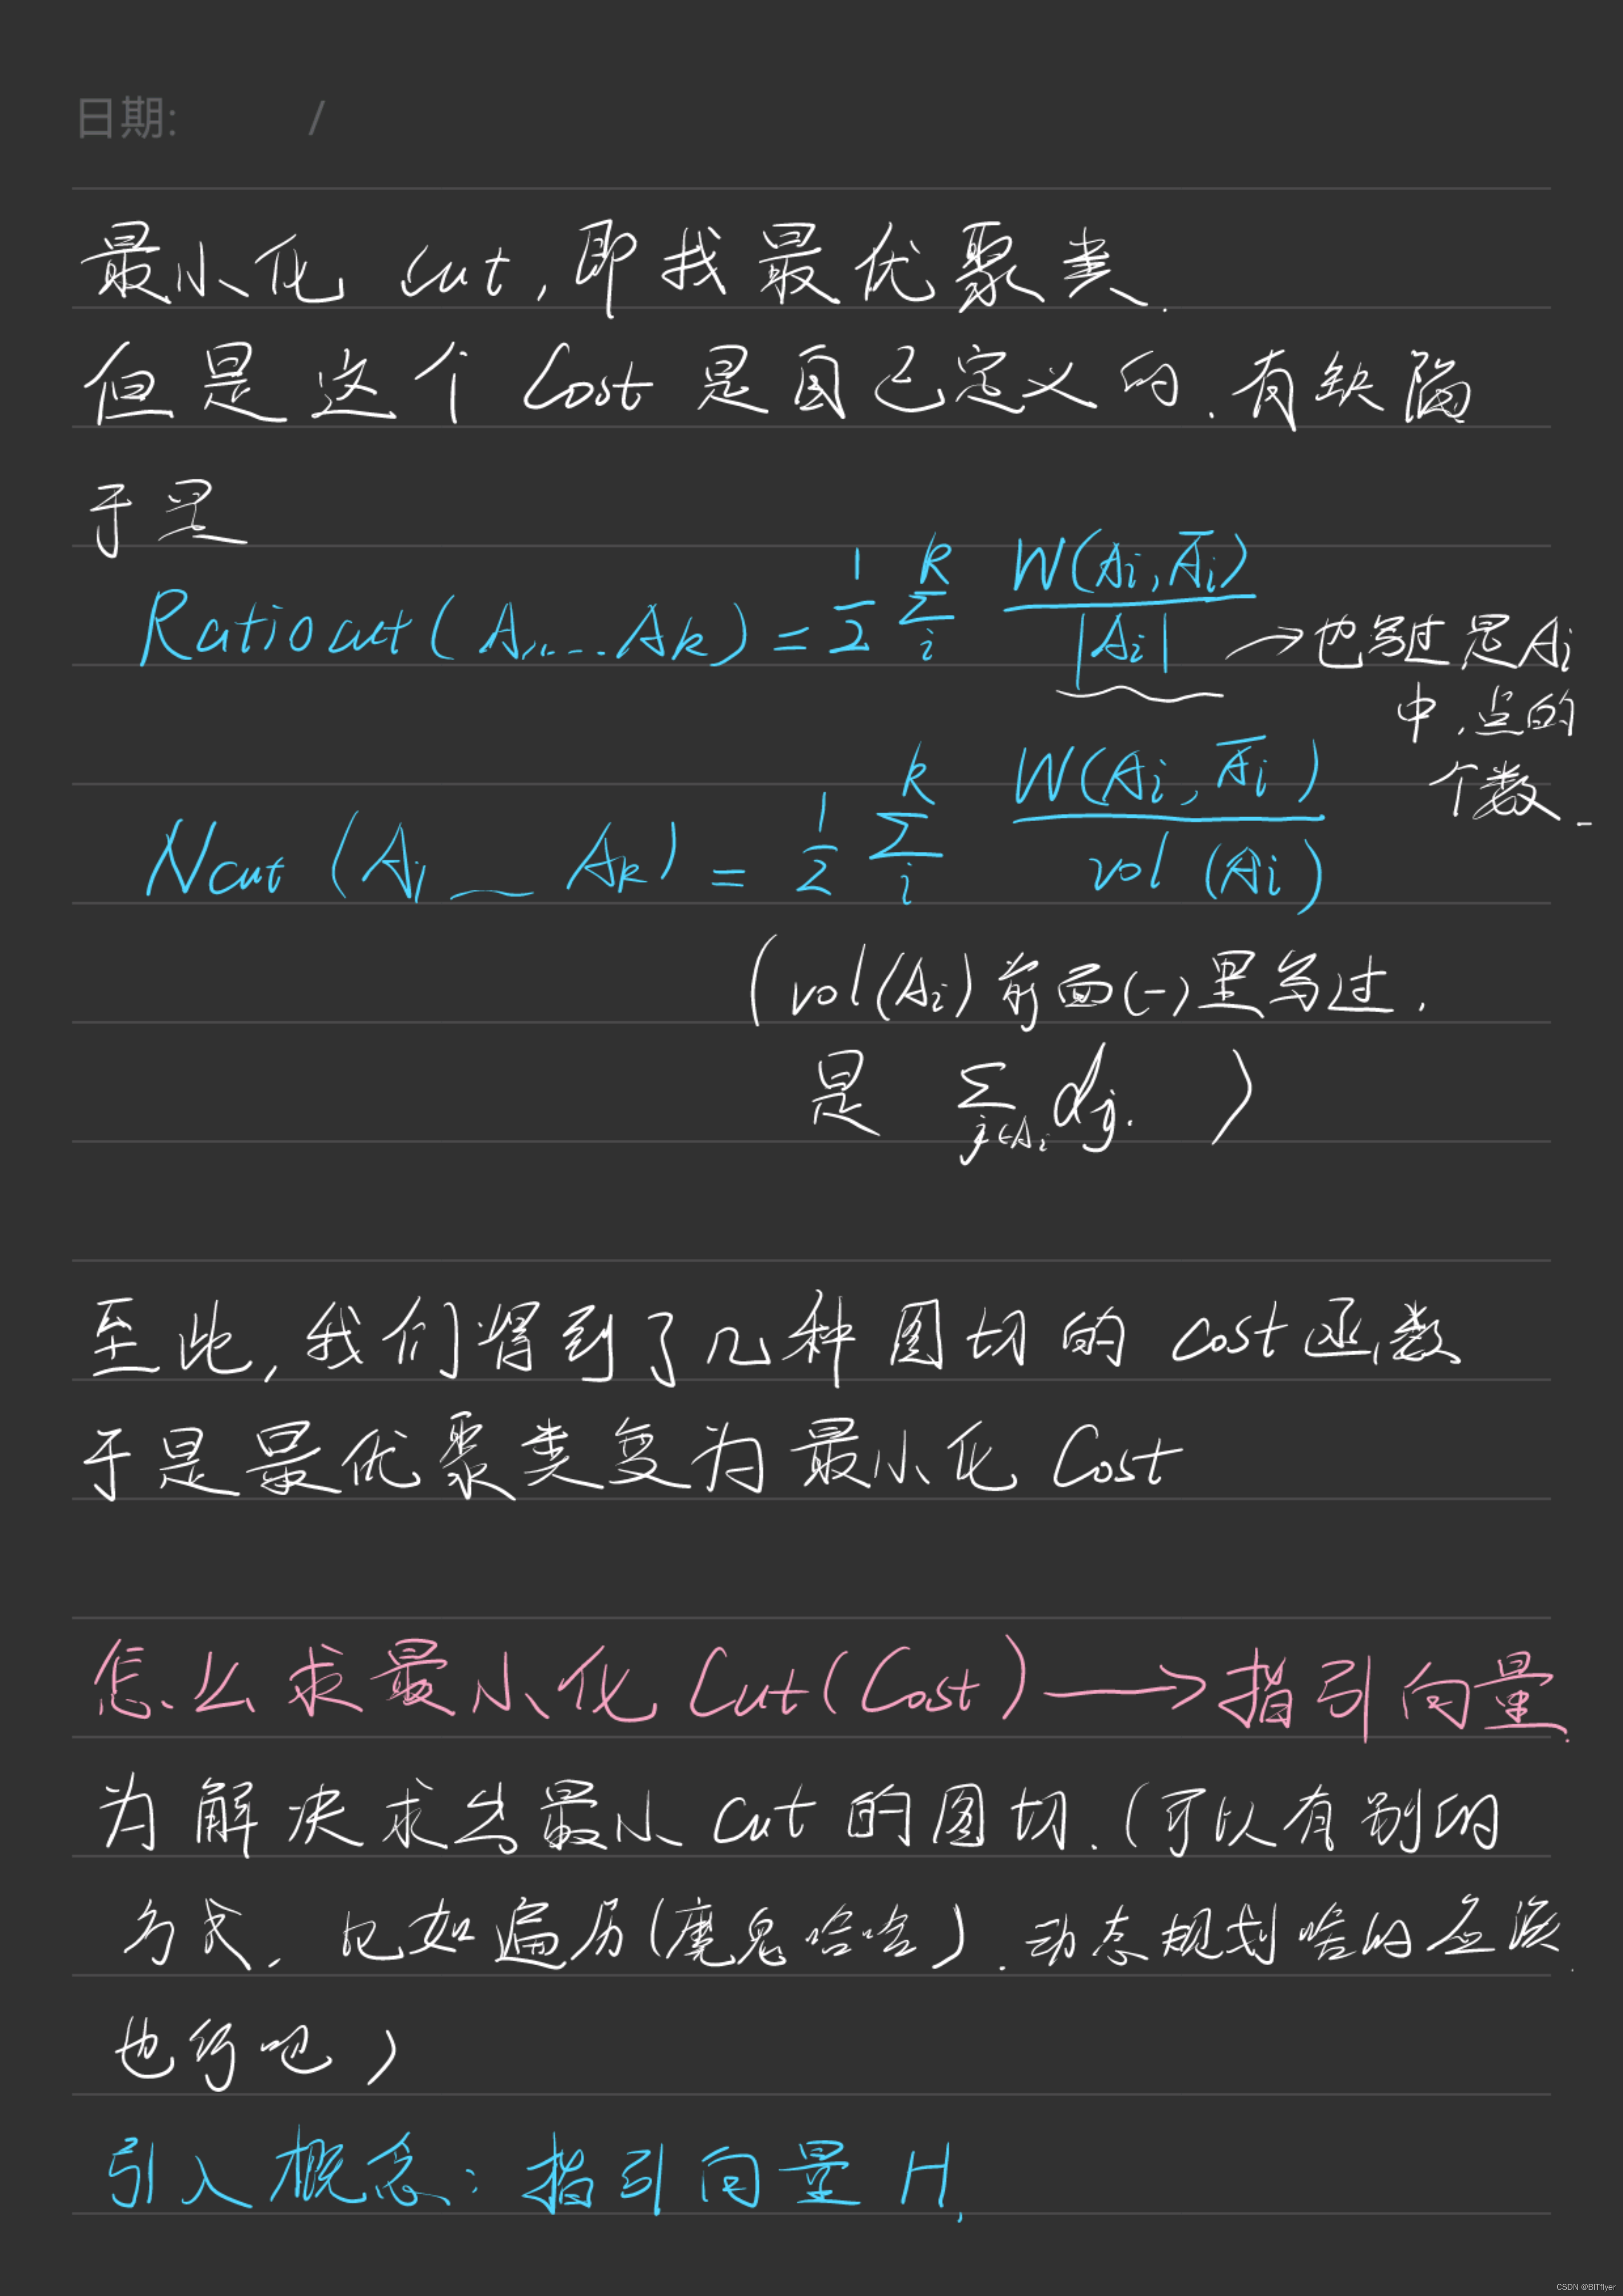 日期: /
最小化 cut, 即找最优聚类.
但是这个 Cost 是自己定义的. 有缺陷
于是
Ratiocut(A₁,....Ak) = 1/2 ∑_i^k W(Ai, Āi) / |Ai| → 也写过是 Ai
中, 点的
个数.
Ncut (A₁ — Ak) = 1/2 ∑_i^k W(Ai, Āi) / vol (Ai)
(vol(Ai) 前面(一)里写过.
是 ∑_{j∈Ai} dj. )
至此, 我们得到了几种图切的 cost 函数
于是最优聚类变为最小化 Cost
怎么求最小化 Cut(Cost) → 指引向量.
为解决求出最小 cut 的图切. (可以有别的
方式, 比如遍历(魔鬼哈哈). 动态规划啥的应该.
也行吧)
引入概念: 指引向量 H,
CSDN @BITflyer